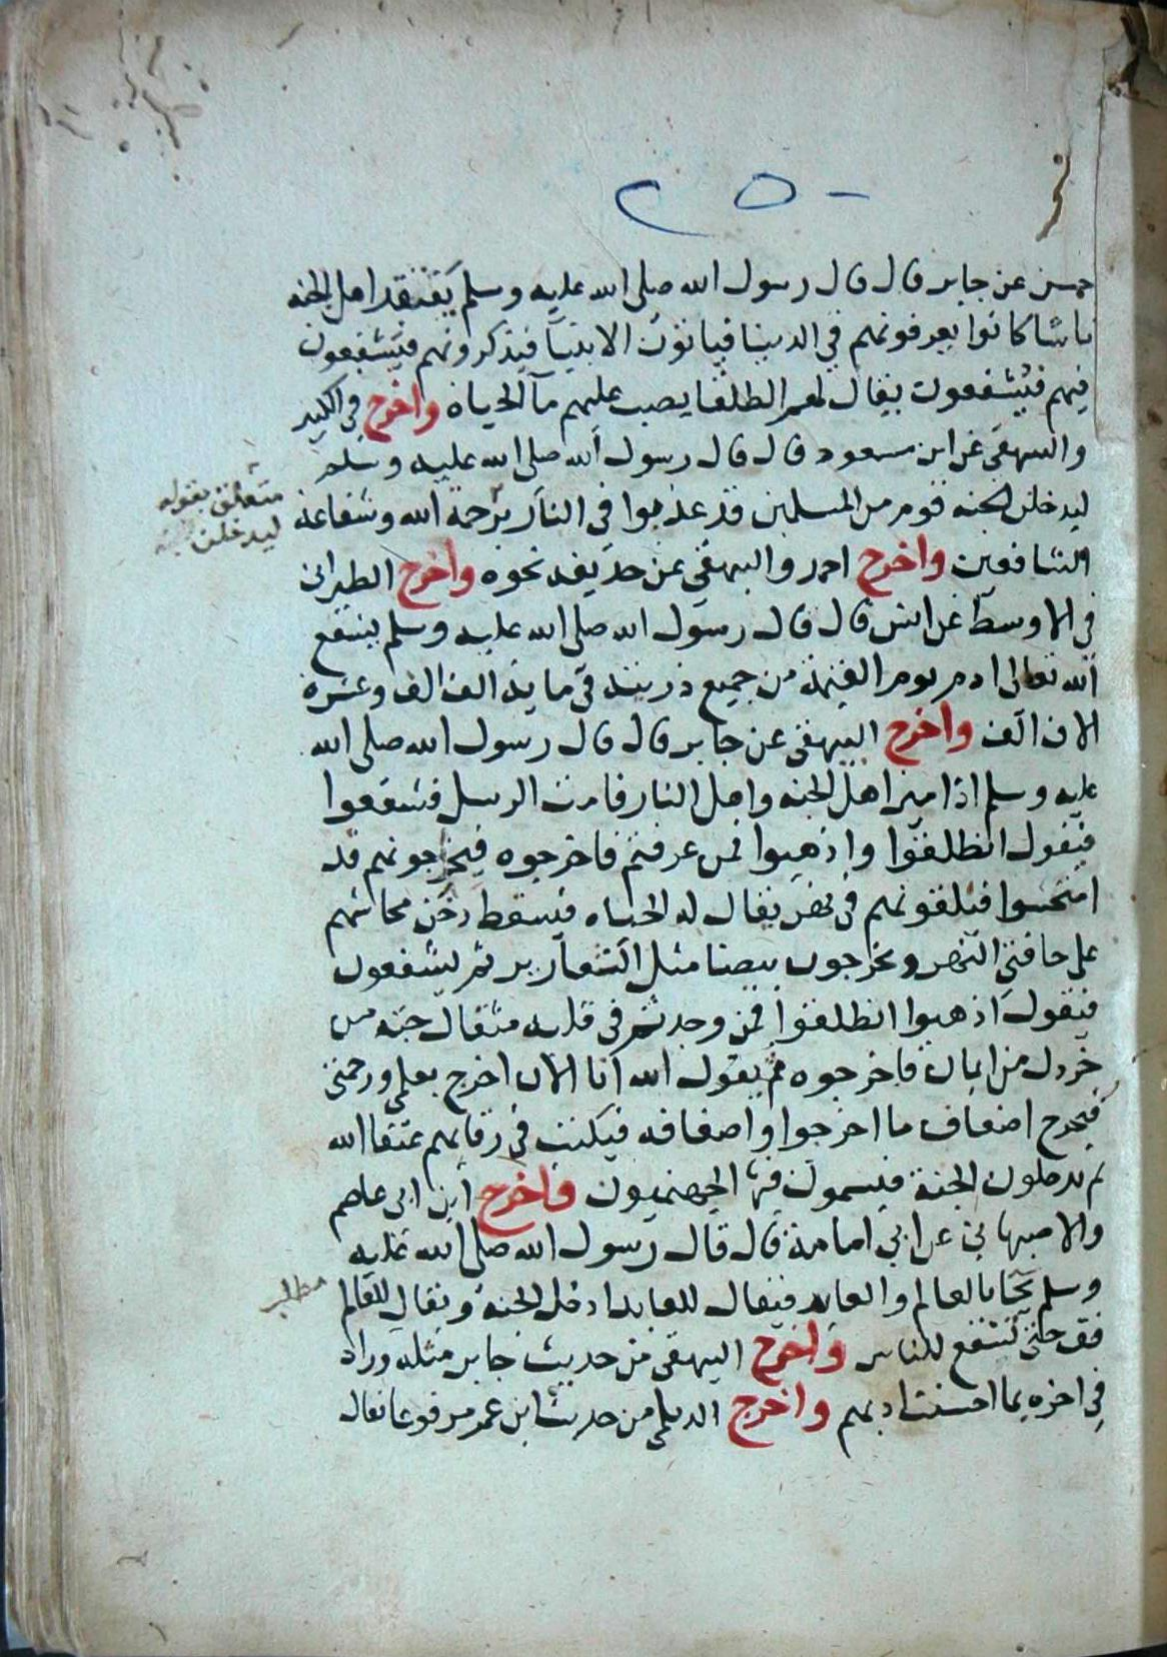 ٢٥٠
حسن عن جابر قال قال رسول الله صلى الله عليه وسلم يفتقد اهل الجنة
ناسا كانوا يعرفونهم في الدنيا فياتون الانبيآ فيذكرونهم فيشفعون
فيهم فيشفعون يقال لهم الطلقا يصب عليهم مآ الحياة واخرج في الكبير
والبيهقي عن ابن مسعود قال قال رسول الله صلى الله عليه وسلم
ليدخلن الجنه قوم من المسلمين قد عذبوا في النار برحمة الله وشفاعة
الشافعين واخرج احمد والبيهقي عن حذيفه نحوه واخرج الطبراني
في الاوسط عن انس قال قال رسول الله صلى الله عليه وسلم يشفع
الله تعالى ادم يوم القيمة من جميع ذريته في ماية الف الف وعشرة
الاف الف واخرج البيهقي عن جابر قال قال رسول الله صلى الله
عليه وسلم اذا ميز اهل الجنه واهل النار قامت الرسل فشفعوا
فيقول انطلقوا واذهبوا فمن عرفتم فاخرجوه فيخرجونهم قد
امتحشوا فيلقونهم في نهر يقال له الحياه فيسقط محاشهم
على حافتي النهر ويخرجون بيضا مثل الثعارير ثم يشفعون
فيقول اذهبوا انطلقوا فمن وجدتم في قلبه مثقال حبه من
خردل من ايمان فاخرجوه ثم يقول الله انا الان اخرج بعلمي ورحمتي
فيخرج اضعاف ما اخرجوا واضعافه فيكتب في رقابهم عتقا الله
ثم يدخلون الجنة فيسمون فيها الجهنميون واخرج ابن ابي عاصم
والاصبهاني عن ابي امامة قال قال رسول الله صلى الله عليه
وسلم يجا بالعالم والعابد فيقال للعابد ادخل الجنة ويقال للعالم
قف حتى تشفع للناس واخرج البيهقي من حديث جابر مثله وزاد
في اخره بما احسنت ادبهم واخرج الديلمي من حديث ابن عمر مرفوعا يقال
متعلق بقوله
ليدخلن
مطلب